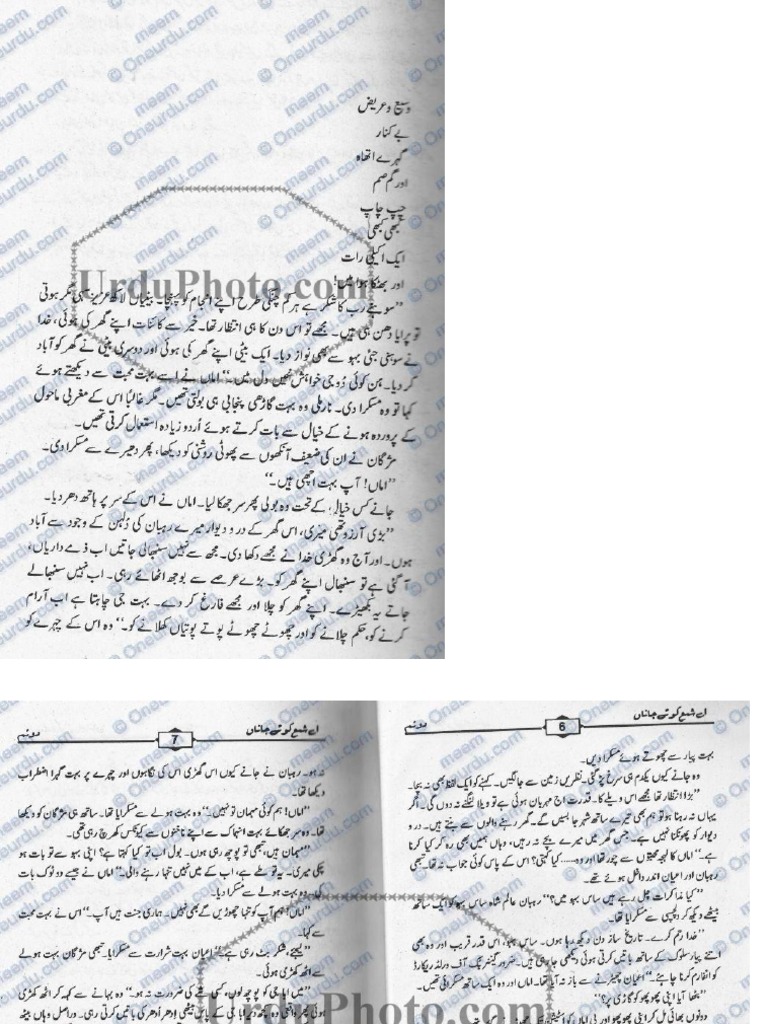 وسیع و عریض
بے کنار
گہرے اتھاہ
اور گم صم
چپ چاپ
کبھی کبھی
ایک اکیلی رات
اور بھٹکا ہوا میں!
UrduPhoto.com
''سوہنے رب کا شکر ہے ہر کم چنگی طرح اپنے انجام کو پہنچا۔ بیٹیاں لاکھ عزیز سہی مگر ہوتی
تو پرایا دھن ہی ہیں۔ مجھے تو اس دن کا ہی انتظار تھا۔ خیر سے کائنات اپنے گھر کی ہوئی، خدا
نے سوہنی جئی بہو سے بھی نواز دیا۔ ایک بیٹی اپنے گھر کی ہوئی اور دوسری بیٹی نے گھر کو آباد
کر دیا۔ ہن کوئی دُوجی خواہش نہیں دل میں۔'' اماں نے اسے بہت محبت سے دیکھتے ہوئے
کہا تو وہ مسکرا دی۔ نارملی وہ بہت گاڑھی پنجابی ہی بولتی تھیں۔ مگر غالبًا اس کے مغربی ماحول
کے پروردہ ہونے کے خیال سے بات کرتے ہوئے اُردو زیادہ استعمال کرتی تھیں۔
مژگان نے ان کی ضعیف آنکھوں سے پھوٹتی روشنی کو دیکھا، پھر دھیرے سے مسکرا دی۔
''اماں! آپ بہت اچھی ہیں۔''
جانے کس خیال کے تحت وہ بولی پھر سر جھکا لیا۔ اماں نے اس کے سر پر ہاتھ دھر دیا۔
''بڑی آرزو تھی میری، اس گھر کے در و دیوار میرے رہبان کی دُلہن کے وجود سے آباد
ہوں۔ اور آج وہ گھڑی خدا نے مجھے دکھا دی۔ مجھ سے نہیں سنبھالی جاتیں اب ذمے داریاں،
آ گئی ہے تو سنبھال اپنے گھر کو۔ بڑے عرصے سے بوجھ اٹھائے رہی۔ اب نہیں سنبھالے
جاتے یہ بکھیڑے۔ اپنے گھر کو چلا اور مجھے فارغ کر دے۔ بہت جی چاہتا ہے اب آرام
کرنے کو، حکم چلانے کو اور چھوٹے چھوٹے پوتے پوتیاں کھلانے کو۔'' وہ اس کے چہرے کو
اے شمع کوئے جاناں 6
بہت پیار سے چھوتے ہوئے مسکرا دیں۔
وہ جانے کیوں یکدم ہی سرخ پڑ گئی۔ نظریں زمین سے جا لگیں۔ کہنے کو ایک لفظ بھی نہ بچا۔
''بڑا انتظار تھا مجھے اس ویلے کا۔ قدرت اج مہربان ہوئی ہے تو ویلا لنگنے نہ دوں گی۔ اگر
یہاں نہ رہنا ہو تو ہم بھی تیرے ساتھ شہر جا بسیں گے۔ گھر رہنے والوں سے بنتے ہیں۔ در و
دیوار کو پھونکنا نہیں ہے۔ جس گھر میں میرے بچے نہ رہیں، وہاں ہمیں بھی رہ کر کیا کرنا
ہے۔'' اماں کا لہجہ محبتوں سے چور تھا اور وہ...... کیا کہتی؟ اس کے پاس کوئی جواب نہ تھا۔ تبھی
رہبان اور اعیان اندر داخل ہوئے تھے۔
''کیا مذاکرات چل رہے ہیں ساس بہو میں؟'' رہبان عالم شاہ ساس بہو کو ایک ساتھ
بیٹھے دیکھ کر دلچسپی سے مسکرایا تھا۔
''خدا رحم کرے۔ تاریخ ساز دن دیکھ رہا ہوں۔ ساس بہو، اس قدر قریب اور وہ بھی
اتنے پیار سلوک کے ساتھ باتیں کرتی ہوئی دیکھی جا رہی ہیں۔ ضرور گینیز بک آف ورلڈ ریکارڈ
کو انفارم کرنا چاہئے۔'' اعیان چھیڑنے سے باز نہ آیا تھا۔ اماں اور وہ ایک ساتھ مسکرائی تھیں۔
اے شمع کوئے جاناں 7
نہ ہو۔ رہبان نے جانے کیوں اس گھڑی اس کی نگاہوں اور چہرے پر بہت گہرا اضطراب
دیکھا تھا۔
''اماں! ہم کوئی مہمان تو نہیں۔'' وہ بہت ہولے سے مسکرایا تھا۔ ساتھ ہی مژگان کو دیکھا
تھا۔ وہ سر جھکائے بہت انہماک سے اپنے ناخنوں سے کیوٹکس کھرچ رہی تھی۔
''مہمان ہیں، تبھی تو پوچھ رہی ہوں۔ بول اب تو کیا کہتا ہے؟ اپنی بہو سے تو بات ہو
چکی میری۔ یہ تو طے ہے، اب کے میں نہیں تنہا رہنے والی۔'' اماں نے جیسے دو ٹوک بات
کی۔ وہ بہت ہولے سے مسکرا دیا۔
''اماں! ہم آپ کو تنہا چھوڑیں گے بھی نہیں۔ ہماری جنت ہیں آپ۔'' اس نے بہت محبت
سے کہا۔
''لیجئے، شکر بٹ رہی ہے۔'' اعیان بہت شرارت سے مسکرایا۔ تبھی مژگان بہت ہولے
سے اٹھ کھڑی ہوئی۔
UrduPhoto.com